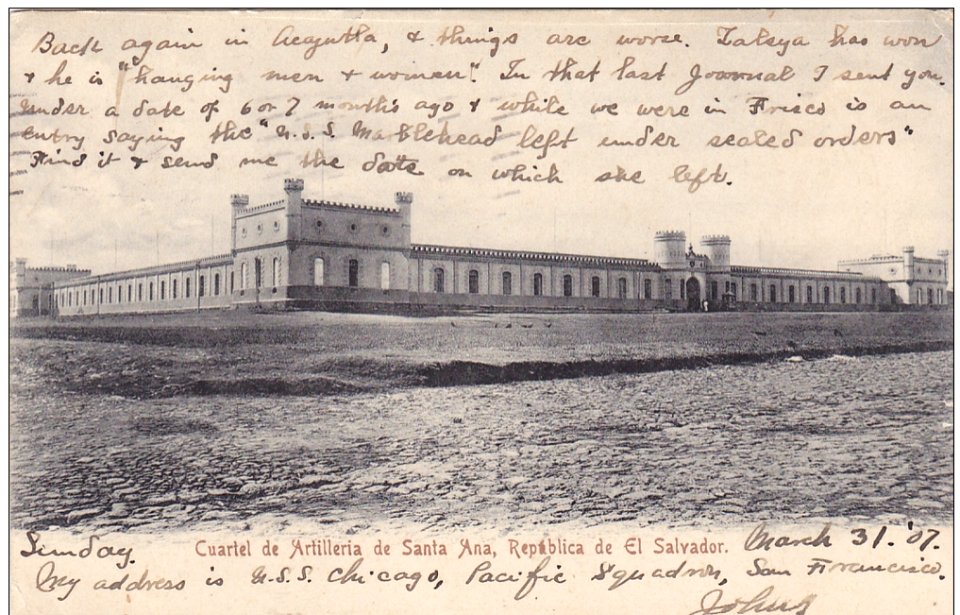 Back again in Acajutla, & things are worse. Zalaya has won
& he is "hanging men & women". In that last Journal I sent you.
under a date of 6 or 7 months ago & while we were in Frisco is an
entry saying the "U.S.S. Marblehead left under sealed orders"
Find it & send me the date on which she left.
Sunday.
Cuartel de Artillería de Santa Ana, República de El Salvador.
March 31. '07.
My address is U.S.S. Chicago, Pacific Squadron, San Francisco.